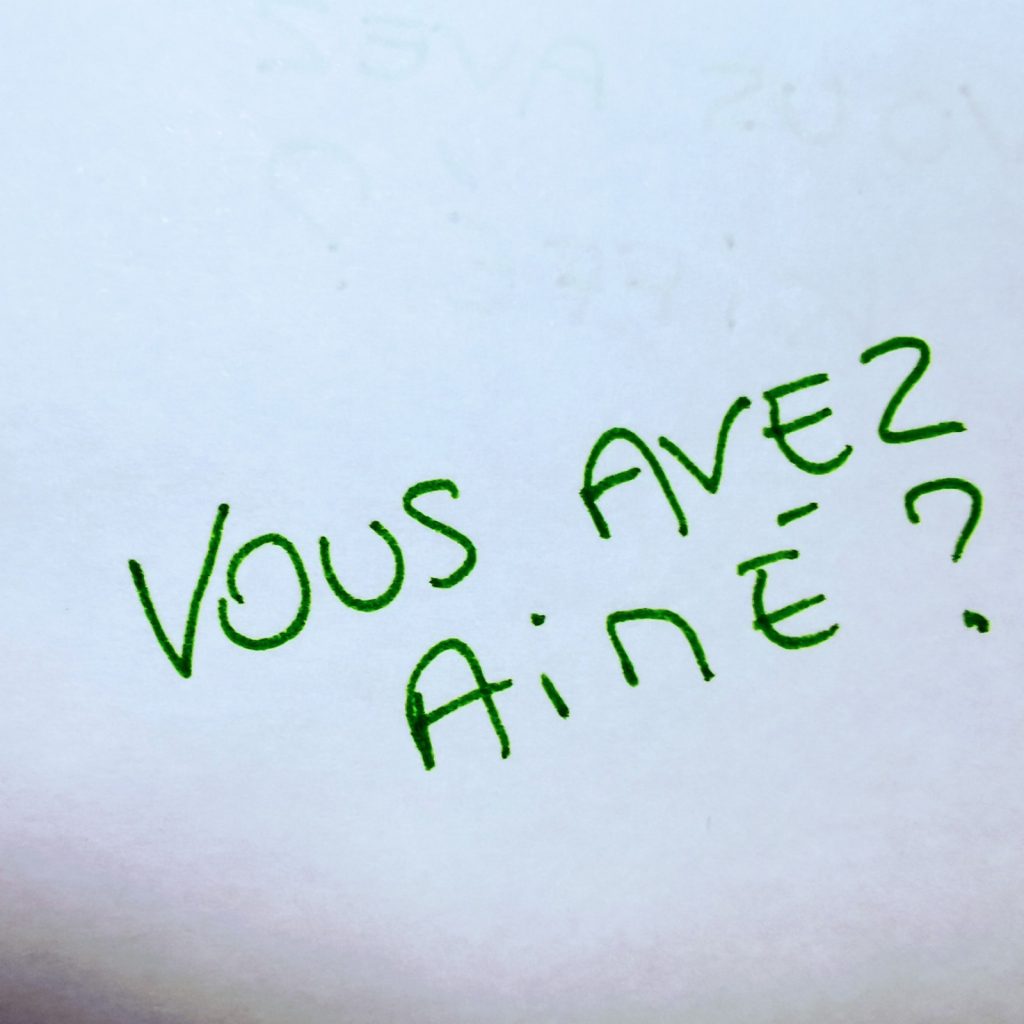 VOUS AVEZ
AinÉ ?